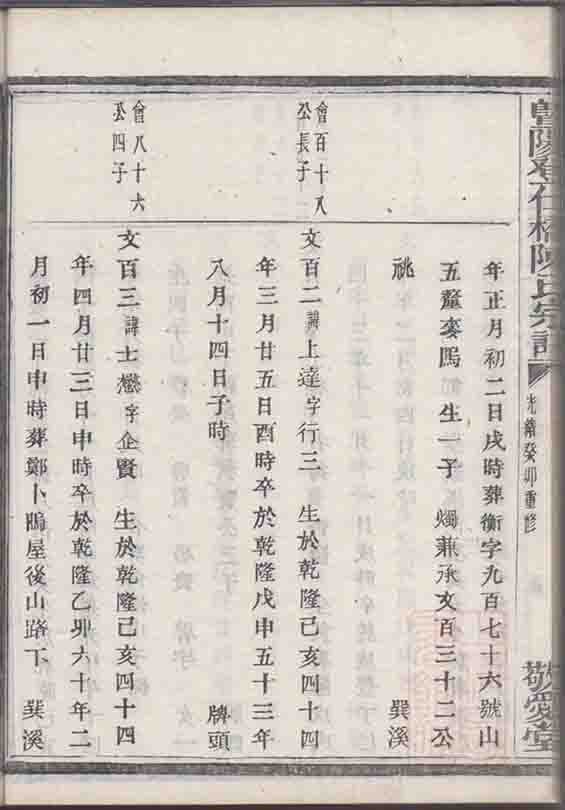 陽石橋陳氏宗譜
光緒癸卯重修
敬愛堂
年正月初二日戌時葬衡字九百七十六號山
五釐麥塢生一子燭兼承文百三十二公
祧 巽溪
會百十八
公長子
文百二諱上達字行三 生於乾隆己亥四十四
年三月廿五日酉時卒於乾隆戊申五十三年
八月十四日子時 牌頭
會八十六
公四子
文百三諱士懋字企賢 生於乾隆己亥四十四
年四月廿三日申時卒於乾隆乙卯六十年二
月初一日申時葬鄭卜塢屋後山路下 巽溪